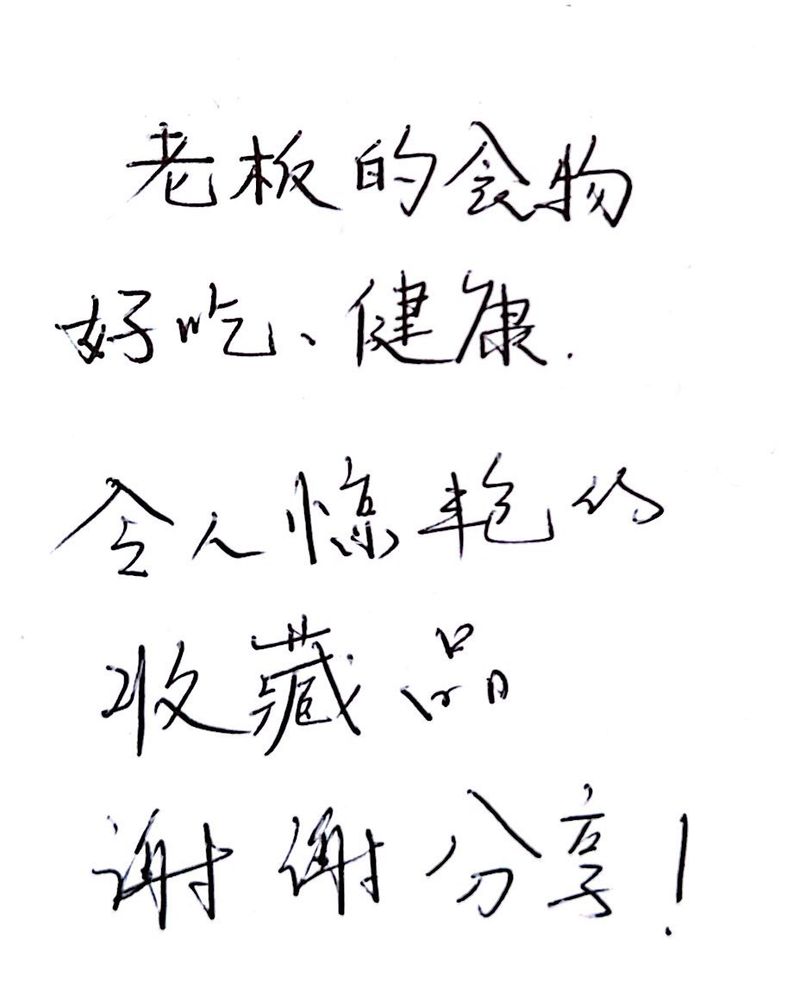 老板的食物
好吃、健康.
令人惊艳的
收藏品
谢谢分享!